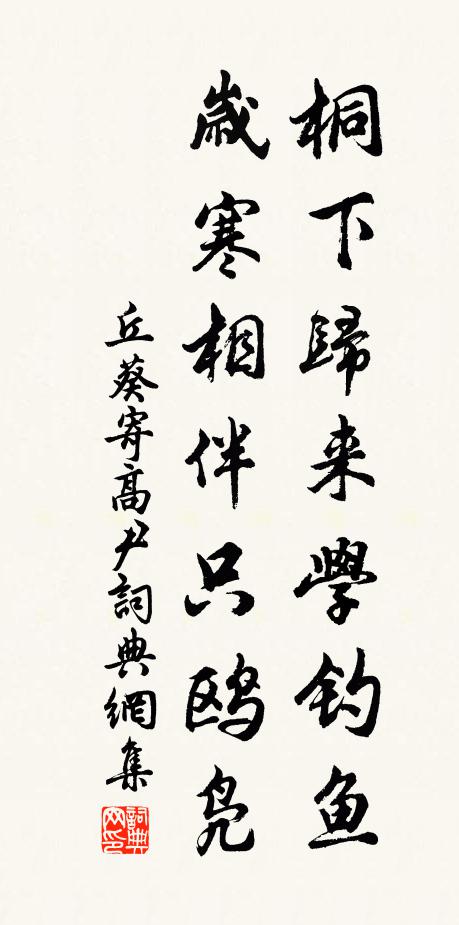 桐下歸来學钓鱼
歳寒相伴只鸥凫
丘葵寄高尹詞典網集
詞典网印